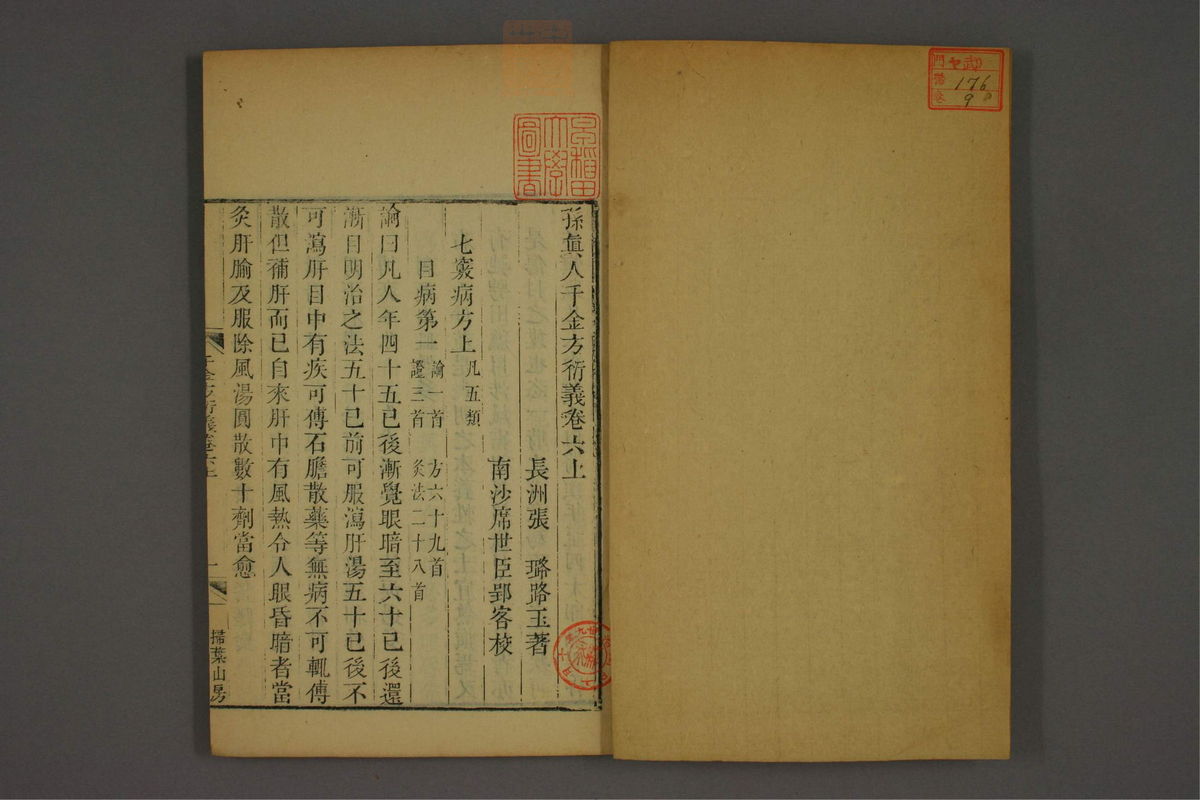 孫眞人千金方衍義卷六上
長洲張　璐路玉著
南沙席世臣郢客校
七竅病方上凡五類
目病第一論一首　方六十九首
證三首　灸法二十八首
論曰凡人年四十五已後漸覺眼暗至六十已後還
漸目明治之法五十已前可服瀉肝湯五十已後不
可瀉肝目中有疾可傅石膽散藥等無病不可輒傅
散但補肝而已自來肝中有風熱令人眼昏暗者當
灸肝腧及服除風湯圓散數十劑當愈
千金方衍義卷六上
一
掃葉山房
早稻田
大學
圖書
門
號 176
卷 9